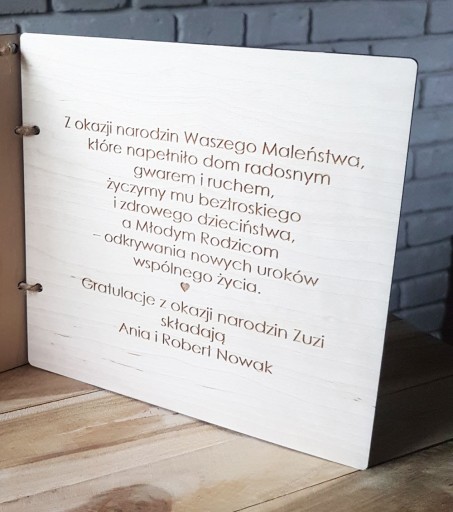 Z okazji narodzin Waszego Maleństwa,
które napełniło dom radosnym
gwarem i ruchem,
życzymy mu beztroskiego
i zdrowego dzieciństwa,
a Młodym Rodzicom
– odkrywania nowych uroków
wspólnego życia.
Gratulacje z okazji narodzin Zuzi
składają
Ania i Robert Nowak